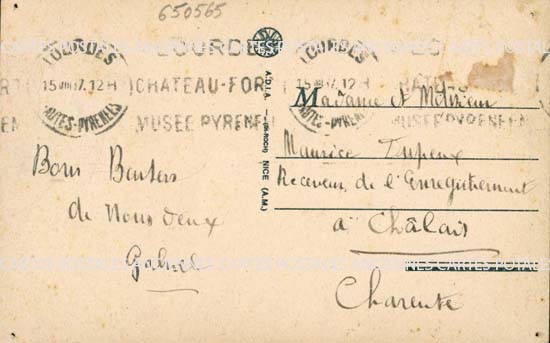 650565
LOURDES
15 VIII 17. 12 H
HAUTES-PYRENEES
LOURDES
CHATEAU-FORT
MUSEE PYRENEEN
LOURDES
15 17. 12 H
HAUTES-PYRENEES
LO
MUSEE PYRENEEN
A.D.I.A. NICE (A.M.)
Bons Baisers
de Nous deux
Gabriel
Madame et Monsieur
Maurice
Receveur de l'Enregistrement
à Châlais
Charente
NES CARTES POSTALES